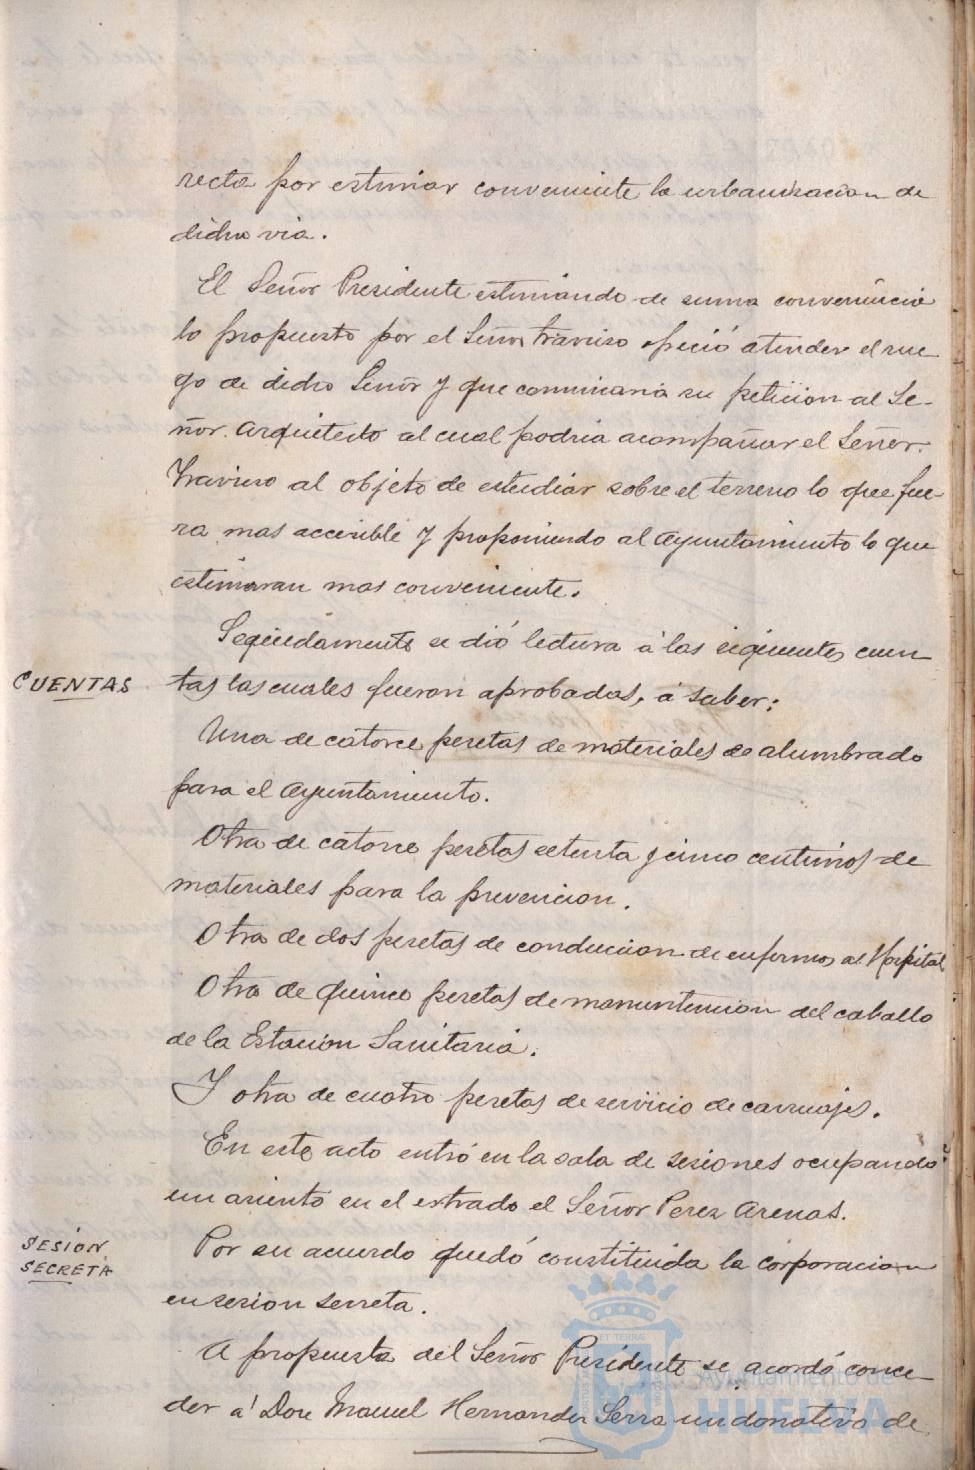 recta por estimar conveniente la urbanizacion de
dicha via.
El Señor Presidente estimando de suma conveniencia
lo propuesto por el Señor Traviso ofreció atender el rue-
go de dicho Señor y que comunicaria su peticion al Se-
ñor. Arquitecto al cual podria acompañar el Señor.
Traviso al objeto de estudiar sobre el terreno lo que fue-
ra mas accesible y proponiendo al Ayuntamiento lo que
estimaran mas conveniente.
Seguidamente se dió lectura á las siguientes cuen
CUENTAS tas las cuales fueron aprobadas, á saber:
Una de catorce pesetas de materiales de alumbrado
para el Ayuntamiento.
Otra de catorce pesetas setenta y cinco centimos de
materiales para la prevencion.
Otra de dos pesetas de conduccion de enfermos al Hospital
Otra de quince pesetas de manuntencion del caballo
de la Estacion Sanitaria.
Y otra de cuatro pesetas de servicio de carruajes.
En este acto entró en la sala de sesiones ocupando
un asiento en el estrado el Señor Perez Arenas.
SESION Por su acuerdo quedó constituida la corporacion
SECRETA
en sesion secreta.
A propuesta del Señor Presidente se acordó conce-
der á Don Manuel Hernandez Serra un donativo de
Ayuntamiento de
HUELVA